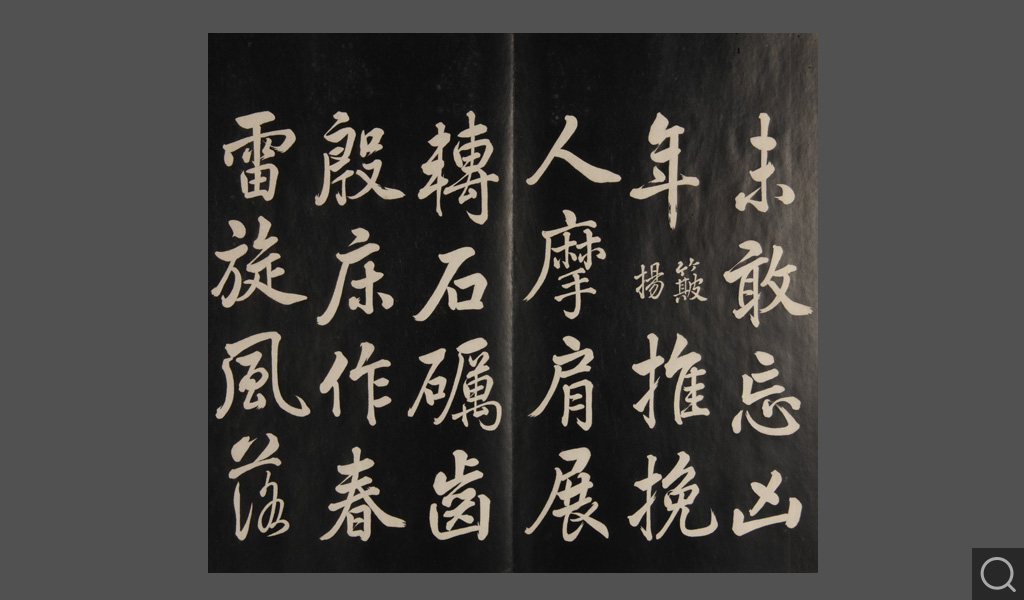 未敢忘凶
年簸揚推挽
人摩肩展
轉石礪齒
殷床作春
雷旋風落